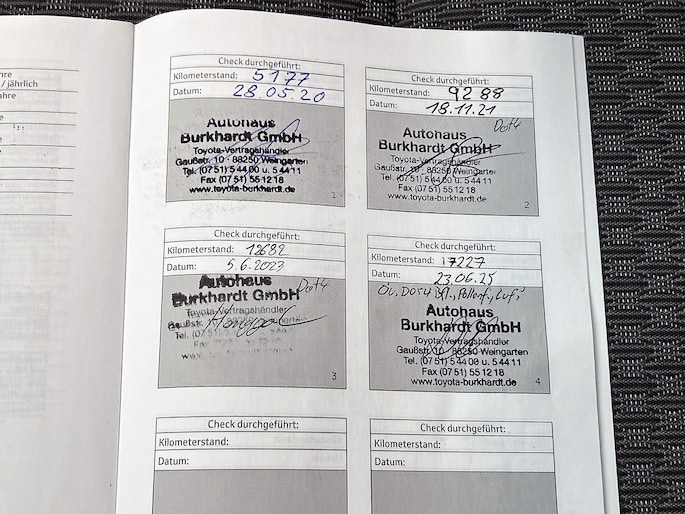 hre
/ jährlich
ahre
Check durchgeführt:
Kilometerstand: 5177
Datum: 28.05.20
Autohaus
Burkhardt GmbH
Toyota-Vertragshändler
Gaußstr. 10 · 88250 Weingarten
Tel. (07 51) 5 44 00 u. 5 44 11
Fax (07 51) 55 12 18
www.toyota-burkhardt.de
1
Check durchgeführt:
Kilometerstand: 9288
Datum: 18.11.21
Dot4
Autohaus
Burkhardt GmbH
Toyota-Vertragshändler
Gaußstr. 10 · 88250 Weingarten
Tel. (07 51) 5 44 00 u. 5 44 11
Fax (07 51) 55 12 18
www.toyota-burkhardt.de
2
Check durchgeführt:
Kilometerstand: 12682
Datum: 5.6.2023
Autohaus
Dot4
Burkhardt GmbH
Toyota-Vertragshändler
Gaußstr.
Tel. (07 51)
Fax
www.
3
Check durchgeführt:
Kilometerstand: 17227
Datum: 23.06.25
Öl, DOT4 Pollenf., Luf.
Autohaus
Burkhardt GmbH
Toyota-Vertragshändler
Gaußstr. 10 · 88250 Weingarten
Tel. (07 51) 5 44 00 u. 5 44 11
Fax (07 51) 55 12 18
www.toyota-burkhardt.de
4
Check durchgeführt:
Kilometerstand:
Datum:
Check durchgeführt:
Kilometerstand:
Datum: